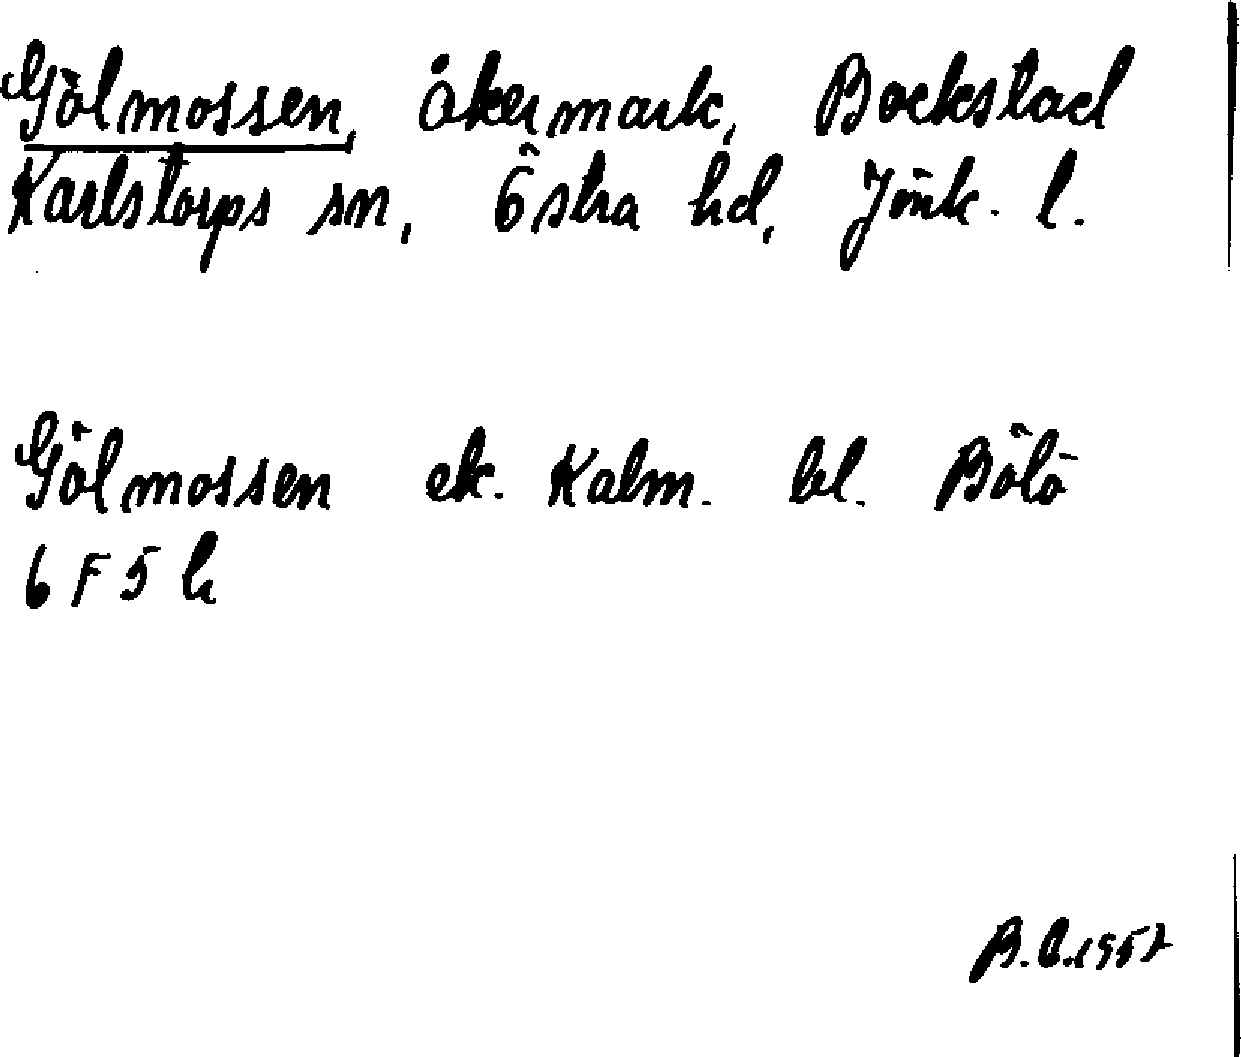 Gölmossen, åkermark, Bockstad
Karlstorps sn, Östra hd, Jönk. l.
Gölmossen ek. Kalm. bl. Bölö
6 F 5 h
B.C. 1957